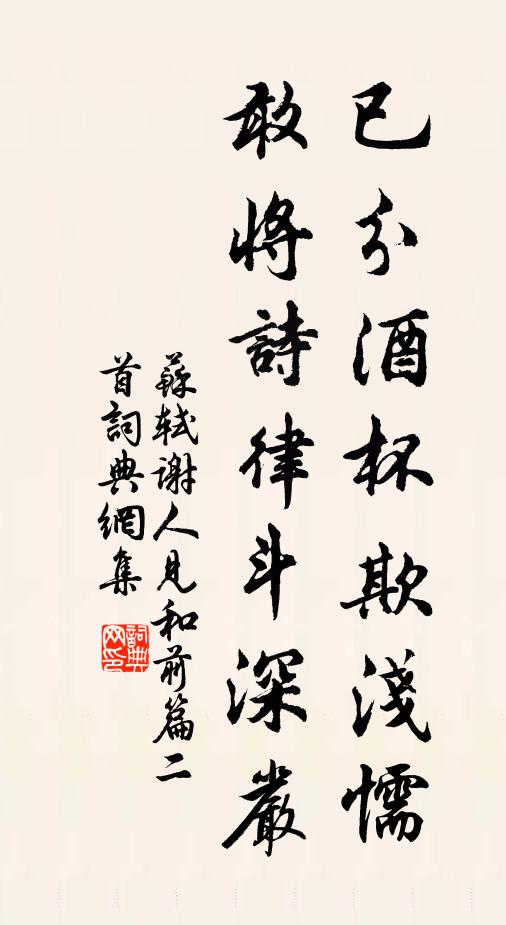 已分酒杯欺淺懦
敢將詩律斗深嚴
蘇軾謝人見和前篇二
首詞典網集
詞典
網印